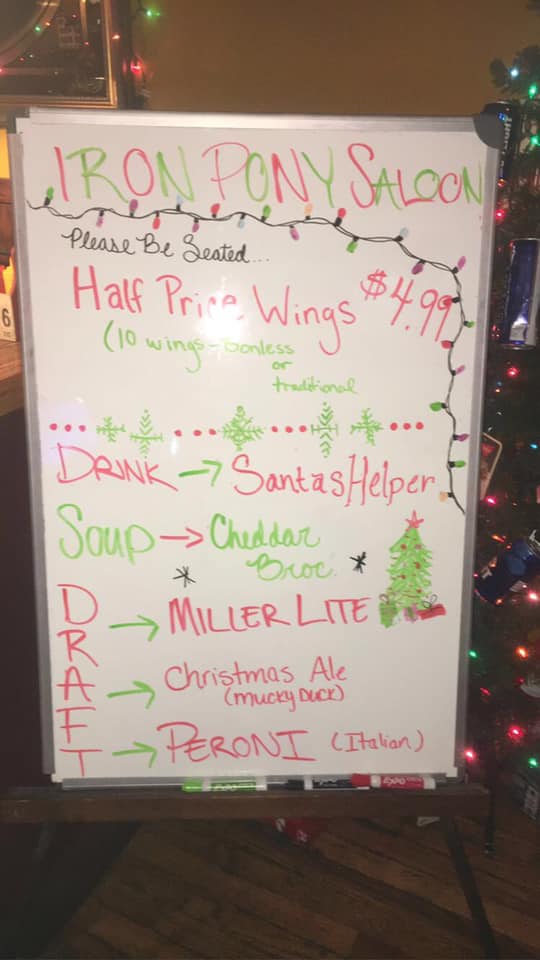 IRON PONY SALOON
Please Be Seated...
Half Price Wings $4.99
(10 wings - bonless
or
traditional
DRINK → Santas Helper
Soup → Cheddar
Broc.
DRAFT
→ MILLER LITE
→ Christmas Ale
(Mucky Duck)
→ PERONI (Italian)
EXPO
6